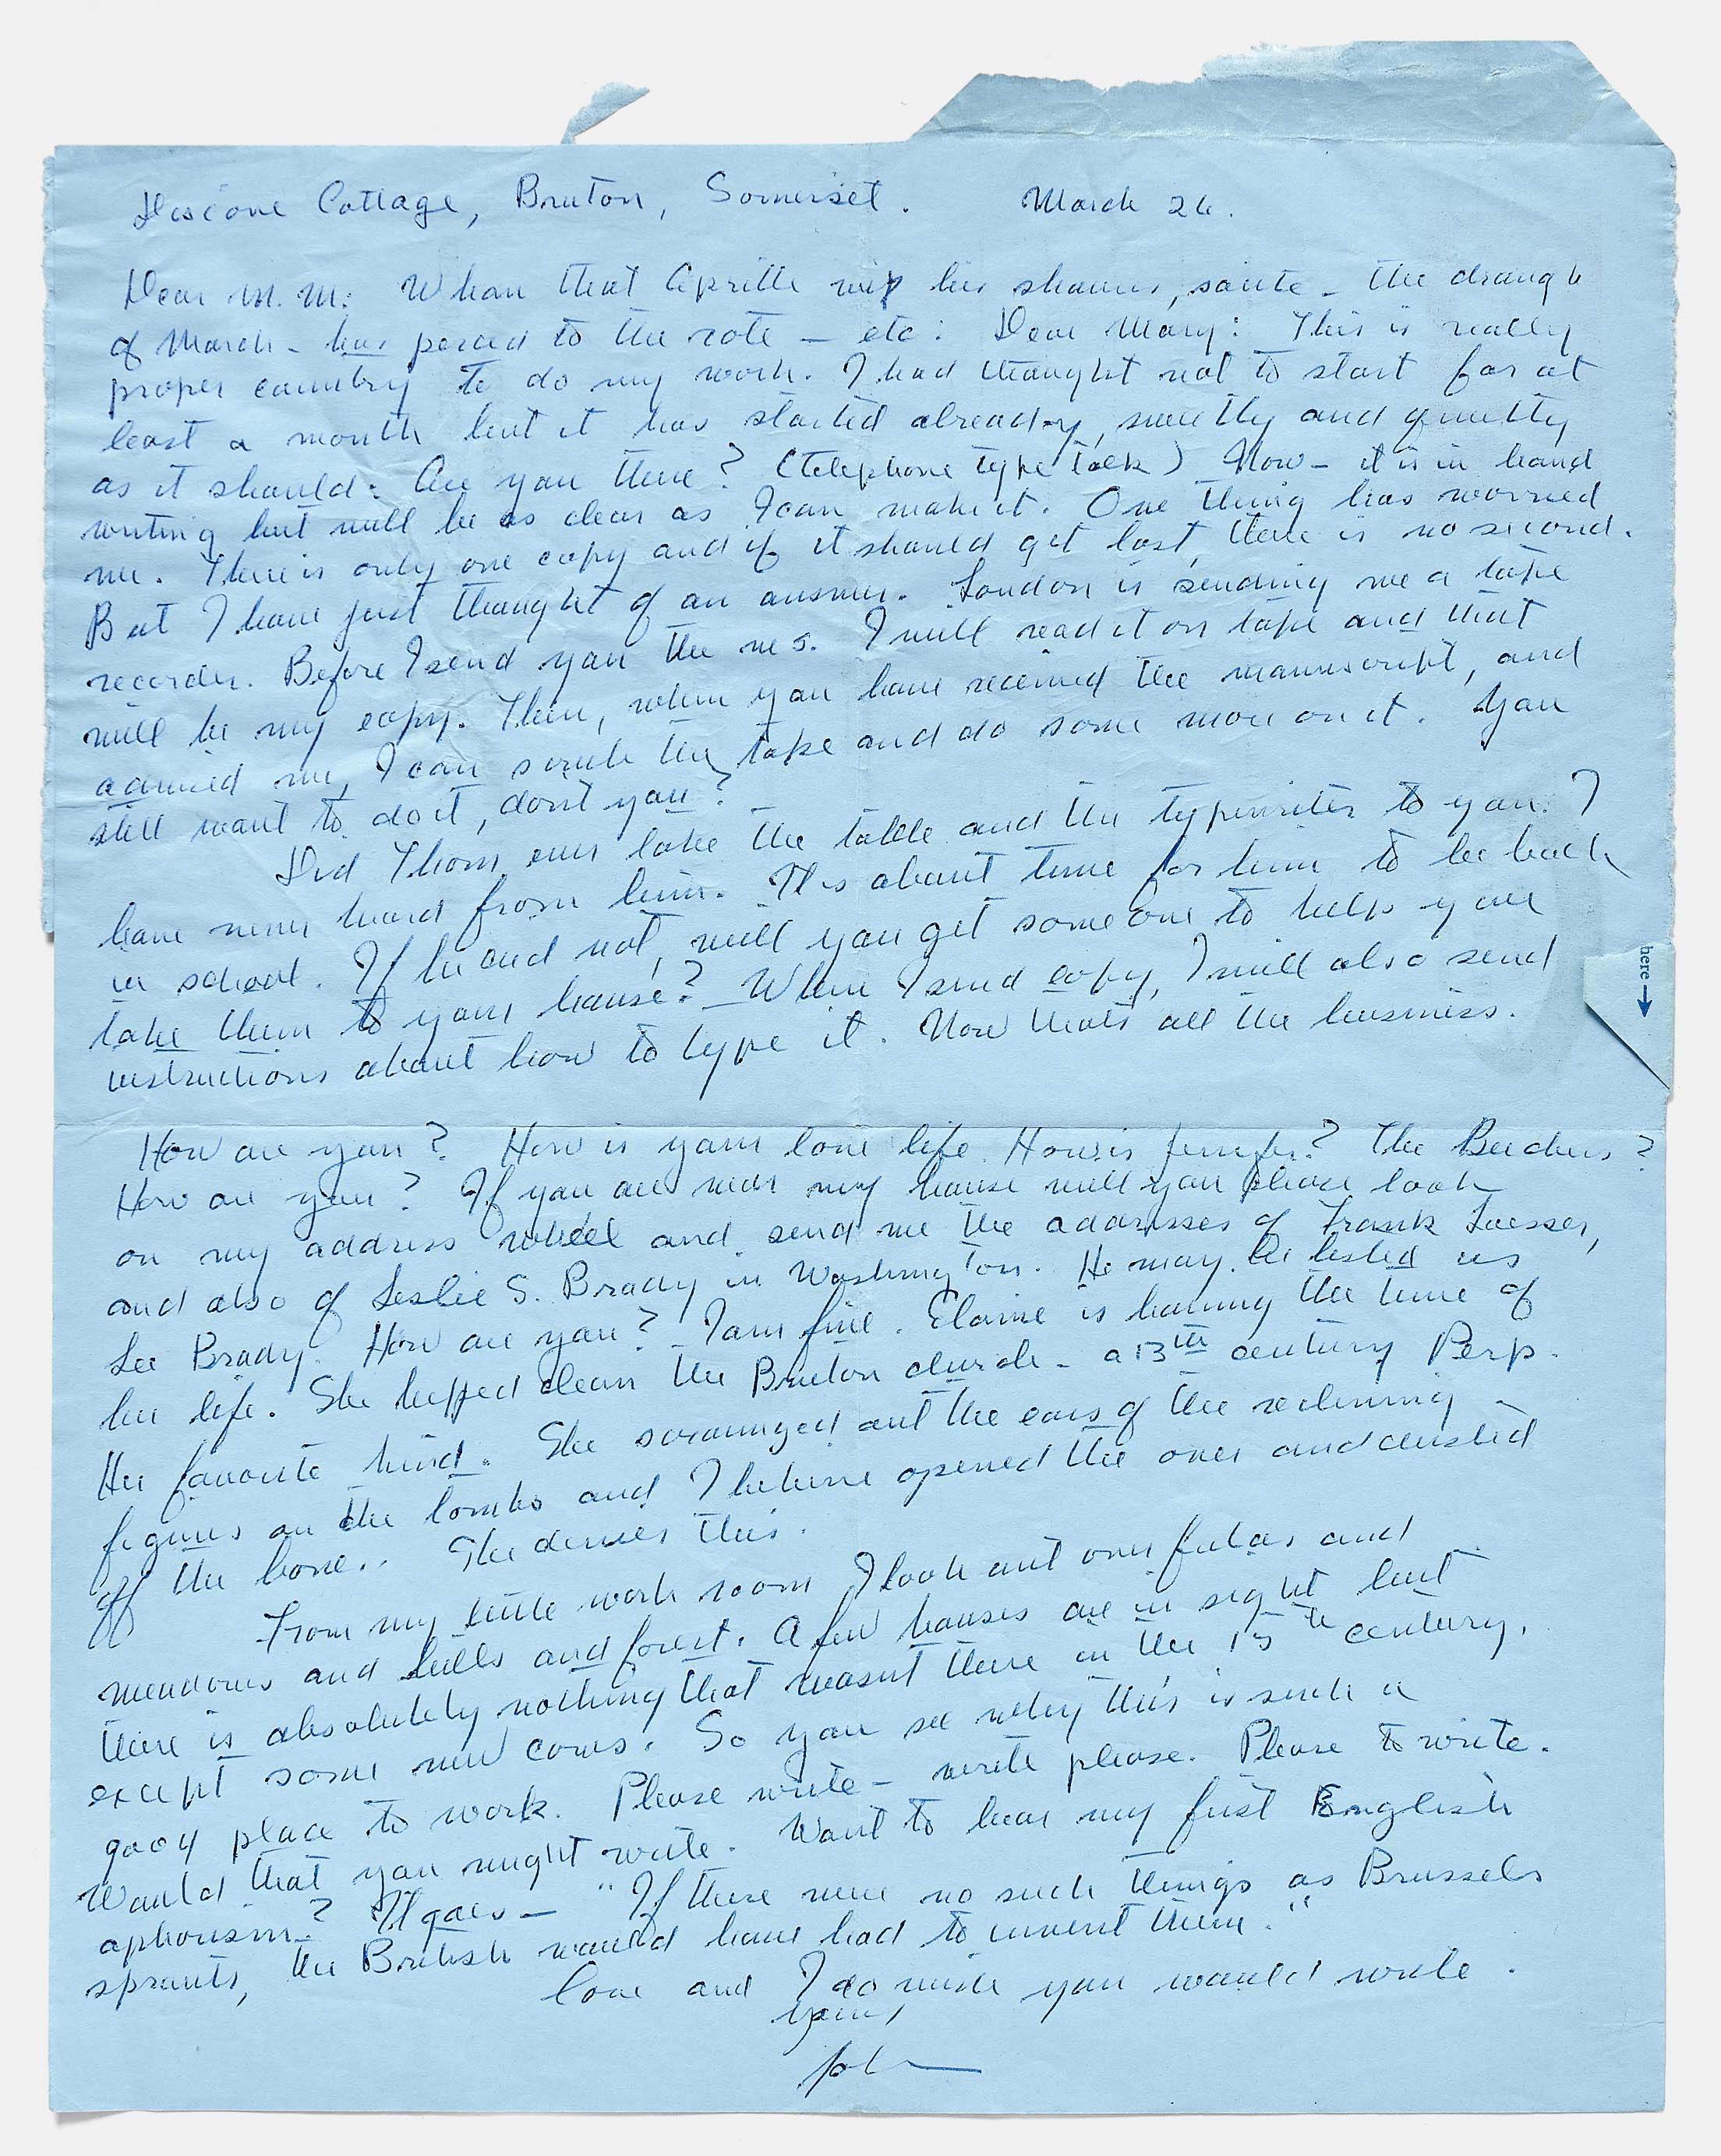 Discove Cottage, Bruton, Somerset. March 24.
Dear M. M: Whan that Aprille wip his shoures, soute - the draugh
of March - has perced to the rote - etc: Dear Mary: This is really
proper country to do my work. I had thought not to start for at
least a month but it has started already, sweetly and quietly
as it should: Are you there? (Telephone type talk) Now - it is in hand
writing but will be as clear as I can make it. One thing has worried
me. There is only one copy and if it should get lost, there is no second.
But I have just thought of an answer. London is sending me a tape
recorder. Before I send you the ms. I will read it on tape and that
will be my copy. Then, when you have received the manuscript, and
advised me, I can scrub the tape and do some more on it. You
still want to do it, dont you?
Did Thom ever take the table and the typewriter to you. I
have never heard from him. It is about time for him to be back
in school. If he did not, will you get some one to help you
take them to your house? When I send copy, I will also send
instructions about how to type it. Now thats all the business.
here
How are you? How is your love life. How is ? The Beechers?
How are you? If you are near my house will you please look
on my address wheel and send me the addresses of Frank Loesser,
and also of Leslie S. Brady in Washington. He may be listed as
Lee Brady. How are you? I am fine. Elaine is having the time of
her life. She helped clean the Bruton church - a 13th century Perp.
Her favorite kind. She scrounged out the ears of the reclining
figures on the tombs and I believe opened the ones and dusted
off the bone.. She denies this.
From my little work room I look out over fields and
meadows and hills and forest. A few houses are in sight but
there is absolutely nothing that wasnt there in the 15th century,
except some new cows. So you see why this is such a
good place to work. Please write - write please. Please to write.
Would that you might write. Want to hear my first English
aphorism? It goes - "If there were no such things as Brussels
sprouts, the British would have had to invent them."
Love and I do wish you would write.
Yours,
John